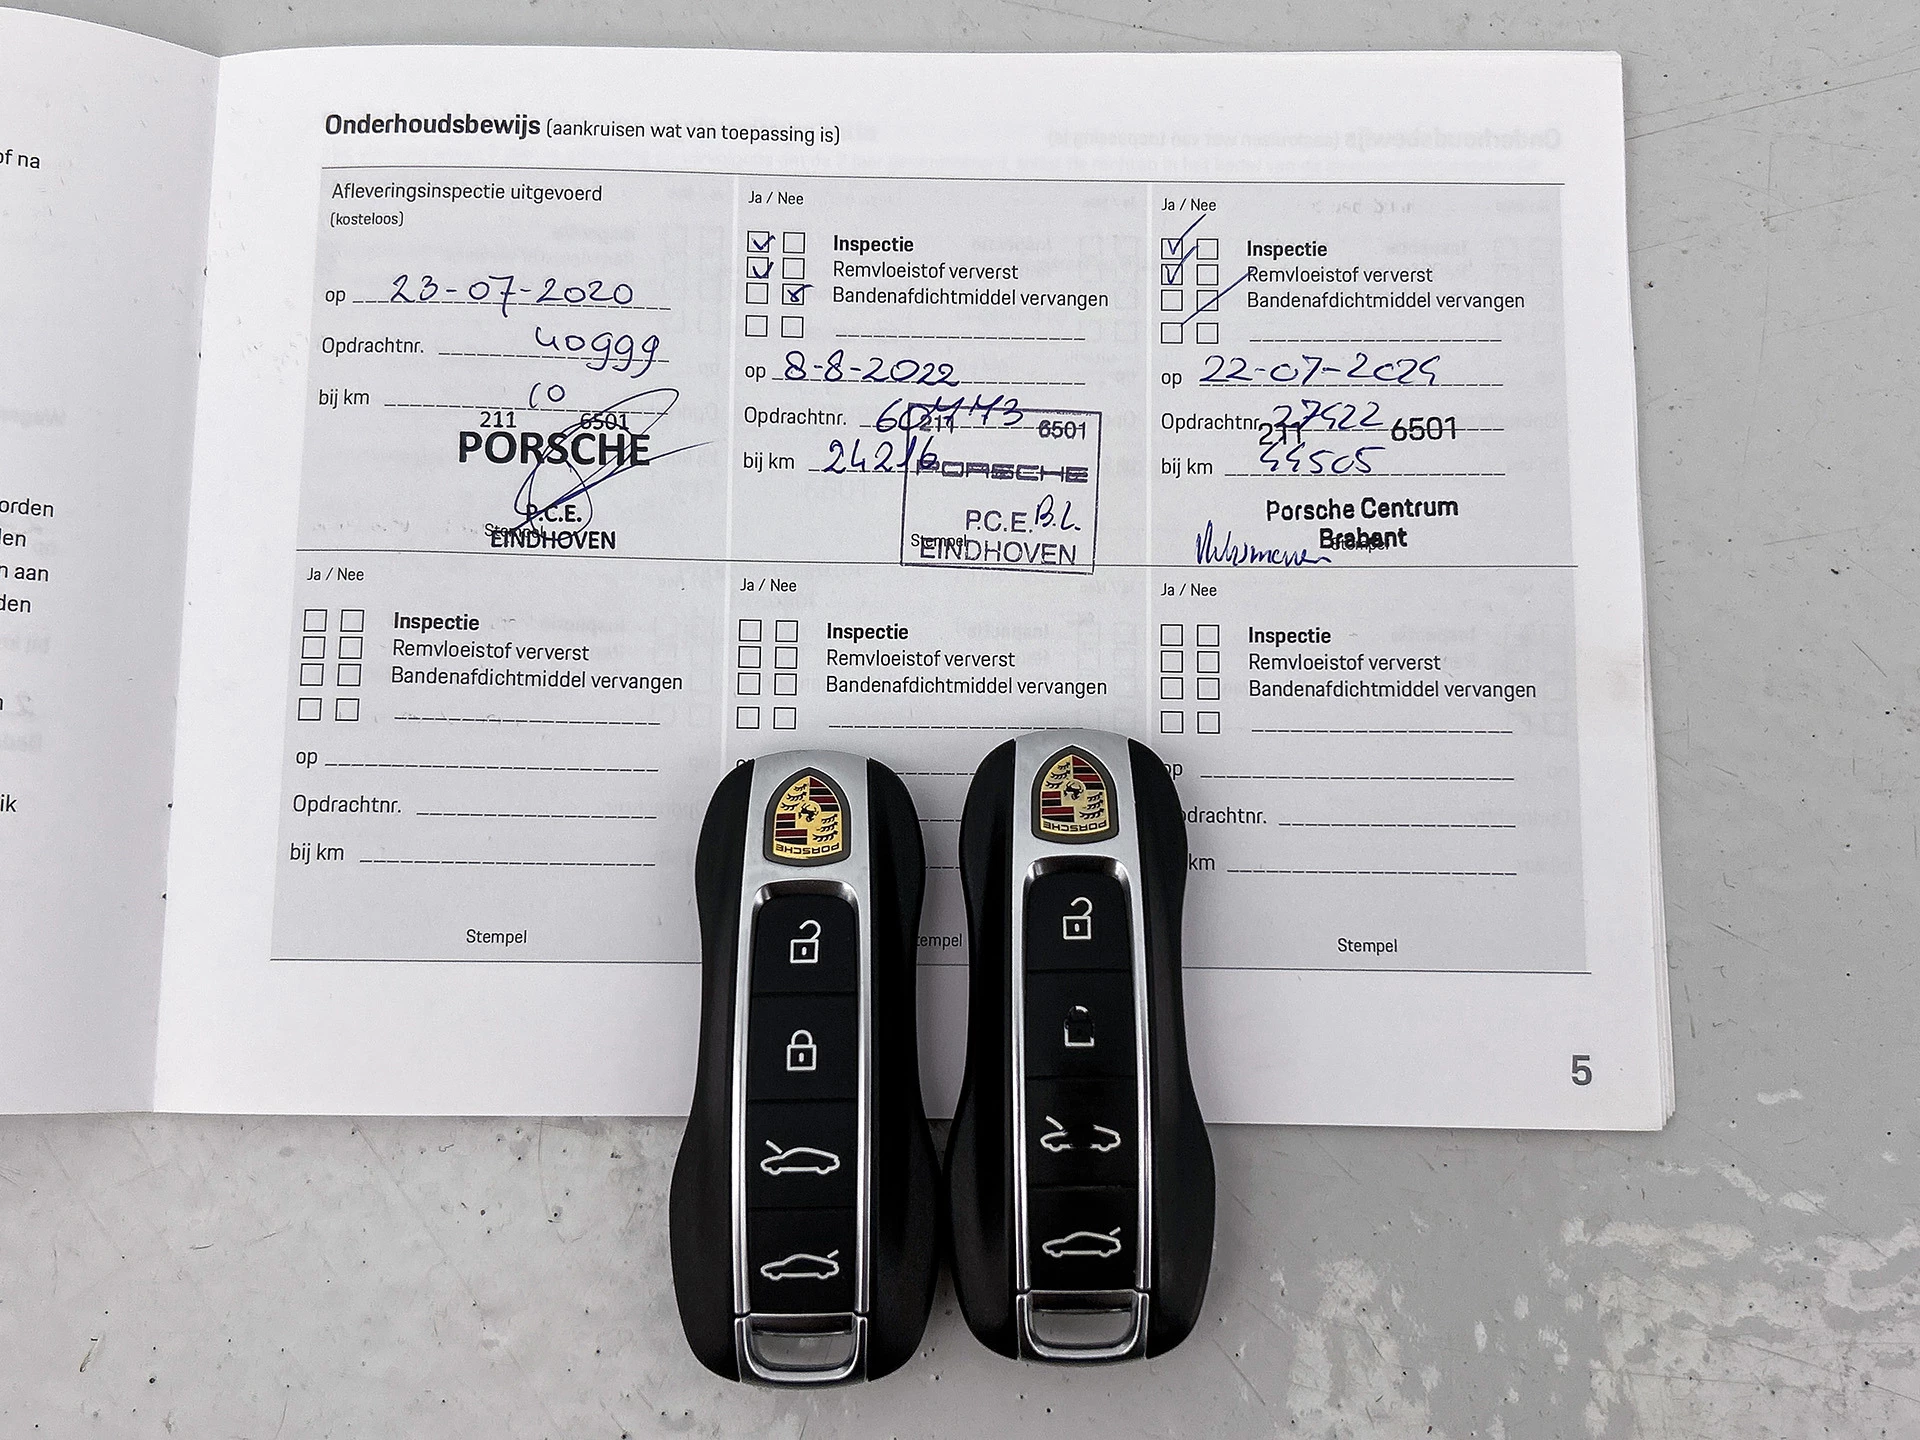 of na
orden
len
n aan
den
ik
Onderhoudsbewijs (aankruisen wat van toepassing is)
Afleveringsinspectie uitgevoerd
(kosteloos)
op 23-07-2020
Opdrachtnr. 40999
bij km 10
211 6501
PORSCHE
P.C.E.
Stempel
EINDHOVEN
Ja / Nee
Inspectie
Remvloeistof ververst
Bandenafdichtmiddel vervangen
op 8-8-2022
Opdrachtnr.
bij km 24216
211 6501
PORSCHE
P.C.E. B.L.
Stempel
EINDHOVEN
Ja / Nee
Inspectie
Remvloeistof ververst
Bandenafdichtmiddel vervangen
op 22-07-2024
Opdrachtnr. 27422
211 6501
bij km 44505
Porsche Centrum
Brabant
Stempel
Ja / Nee
Inspectie
Remvloeistof ververst
Bandenafdichtmiddel vervangen
op
Opdrachtnr.
bij km
Stempel
Ja / Nee
Inspectie
Remvloeistof ververst
Bandenafdichtmiddel vervangen
tempel
Ja / Nee
Inspectie
Remvloeistof ververst
Bandenafdichtmiddel vervangen
op
pdrachtnr.
km
Stempel
PORSCHE
PORSCHE
5